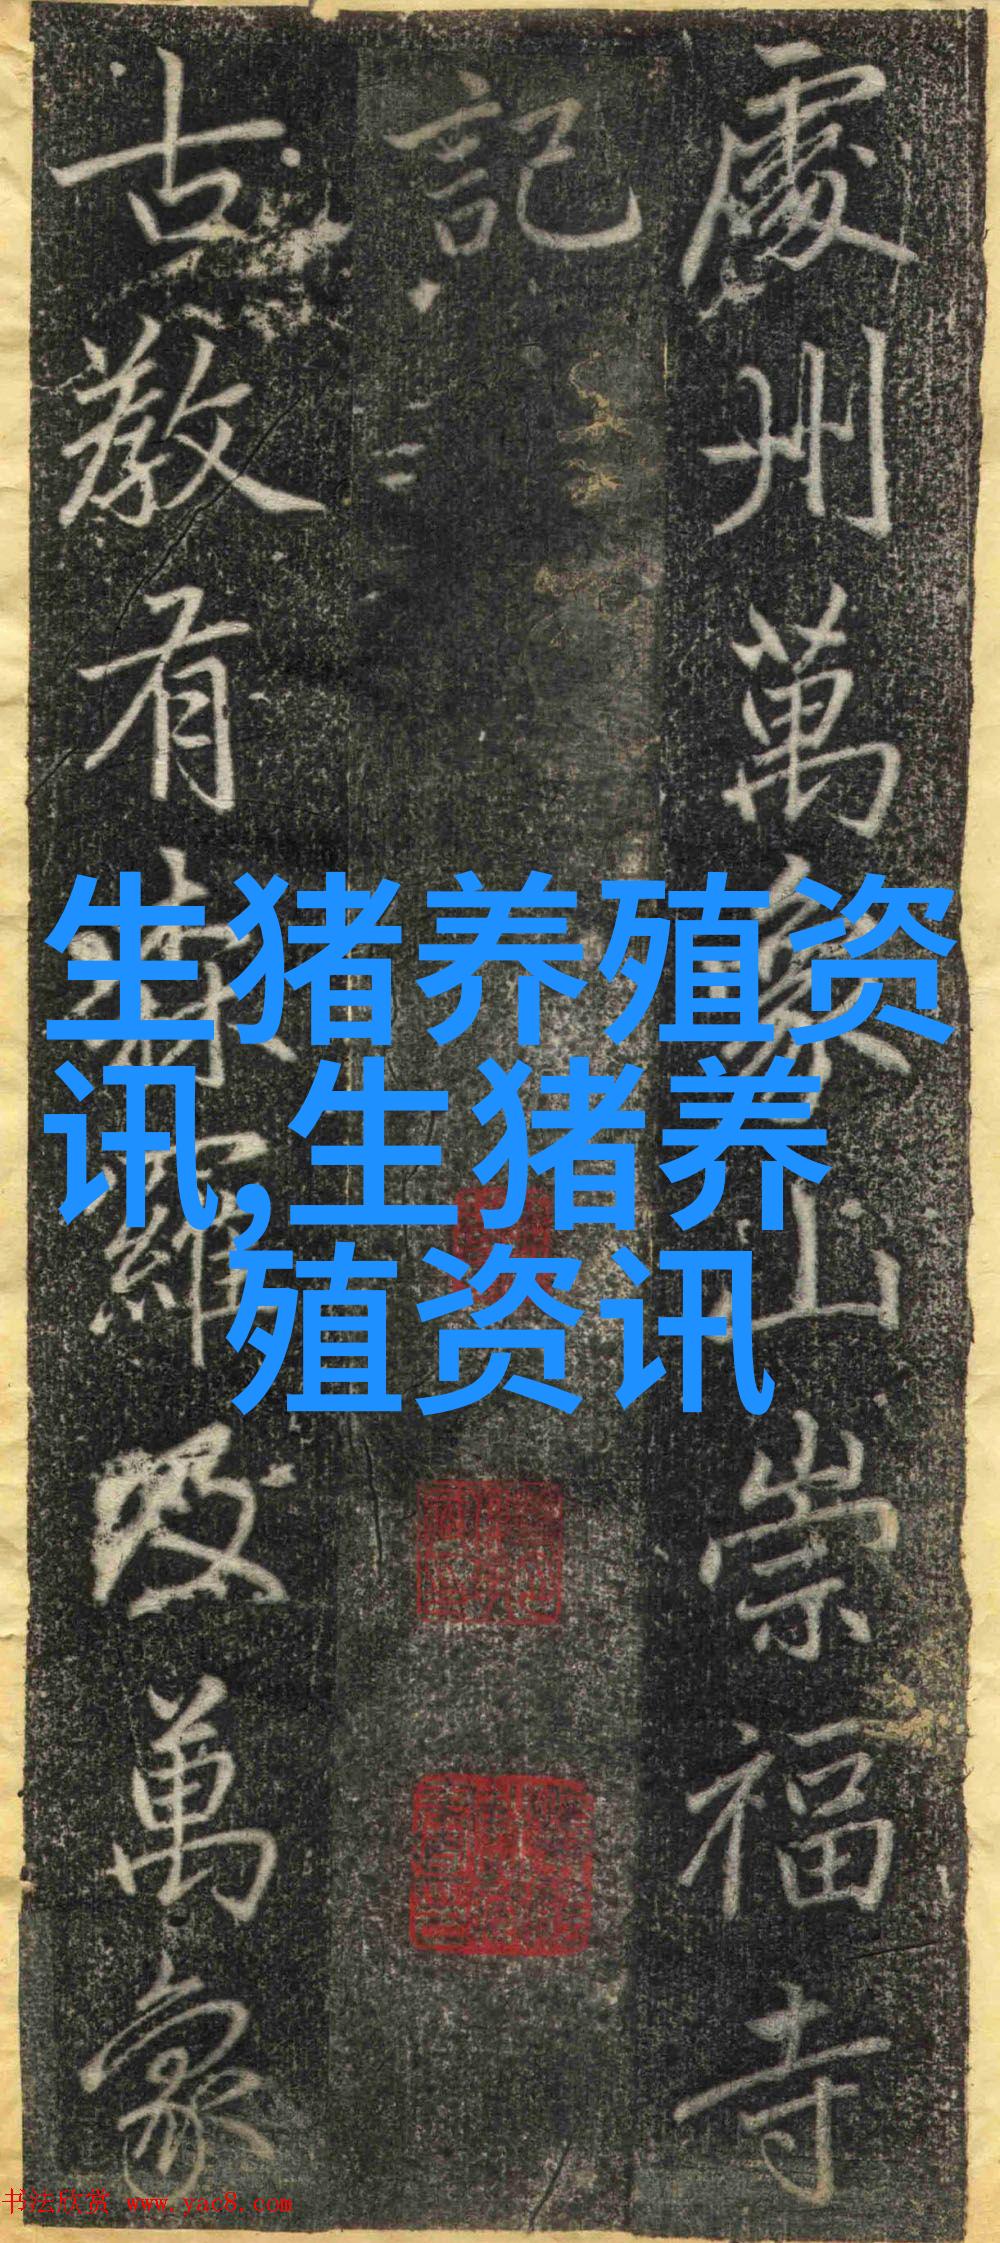 處州萬象山崇福寺
記
古教有森羅及萬象
生猪养殖资
讯,生猪养
殖资讯
书法欣赏 www.yac8.com